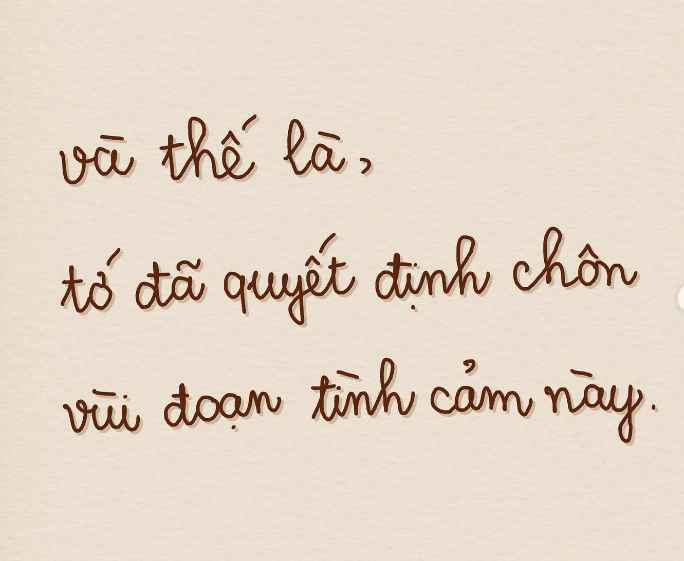 và thế là,
tớ đã quyết định chôn
vùi đoạn tình cảm này.